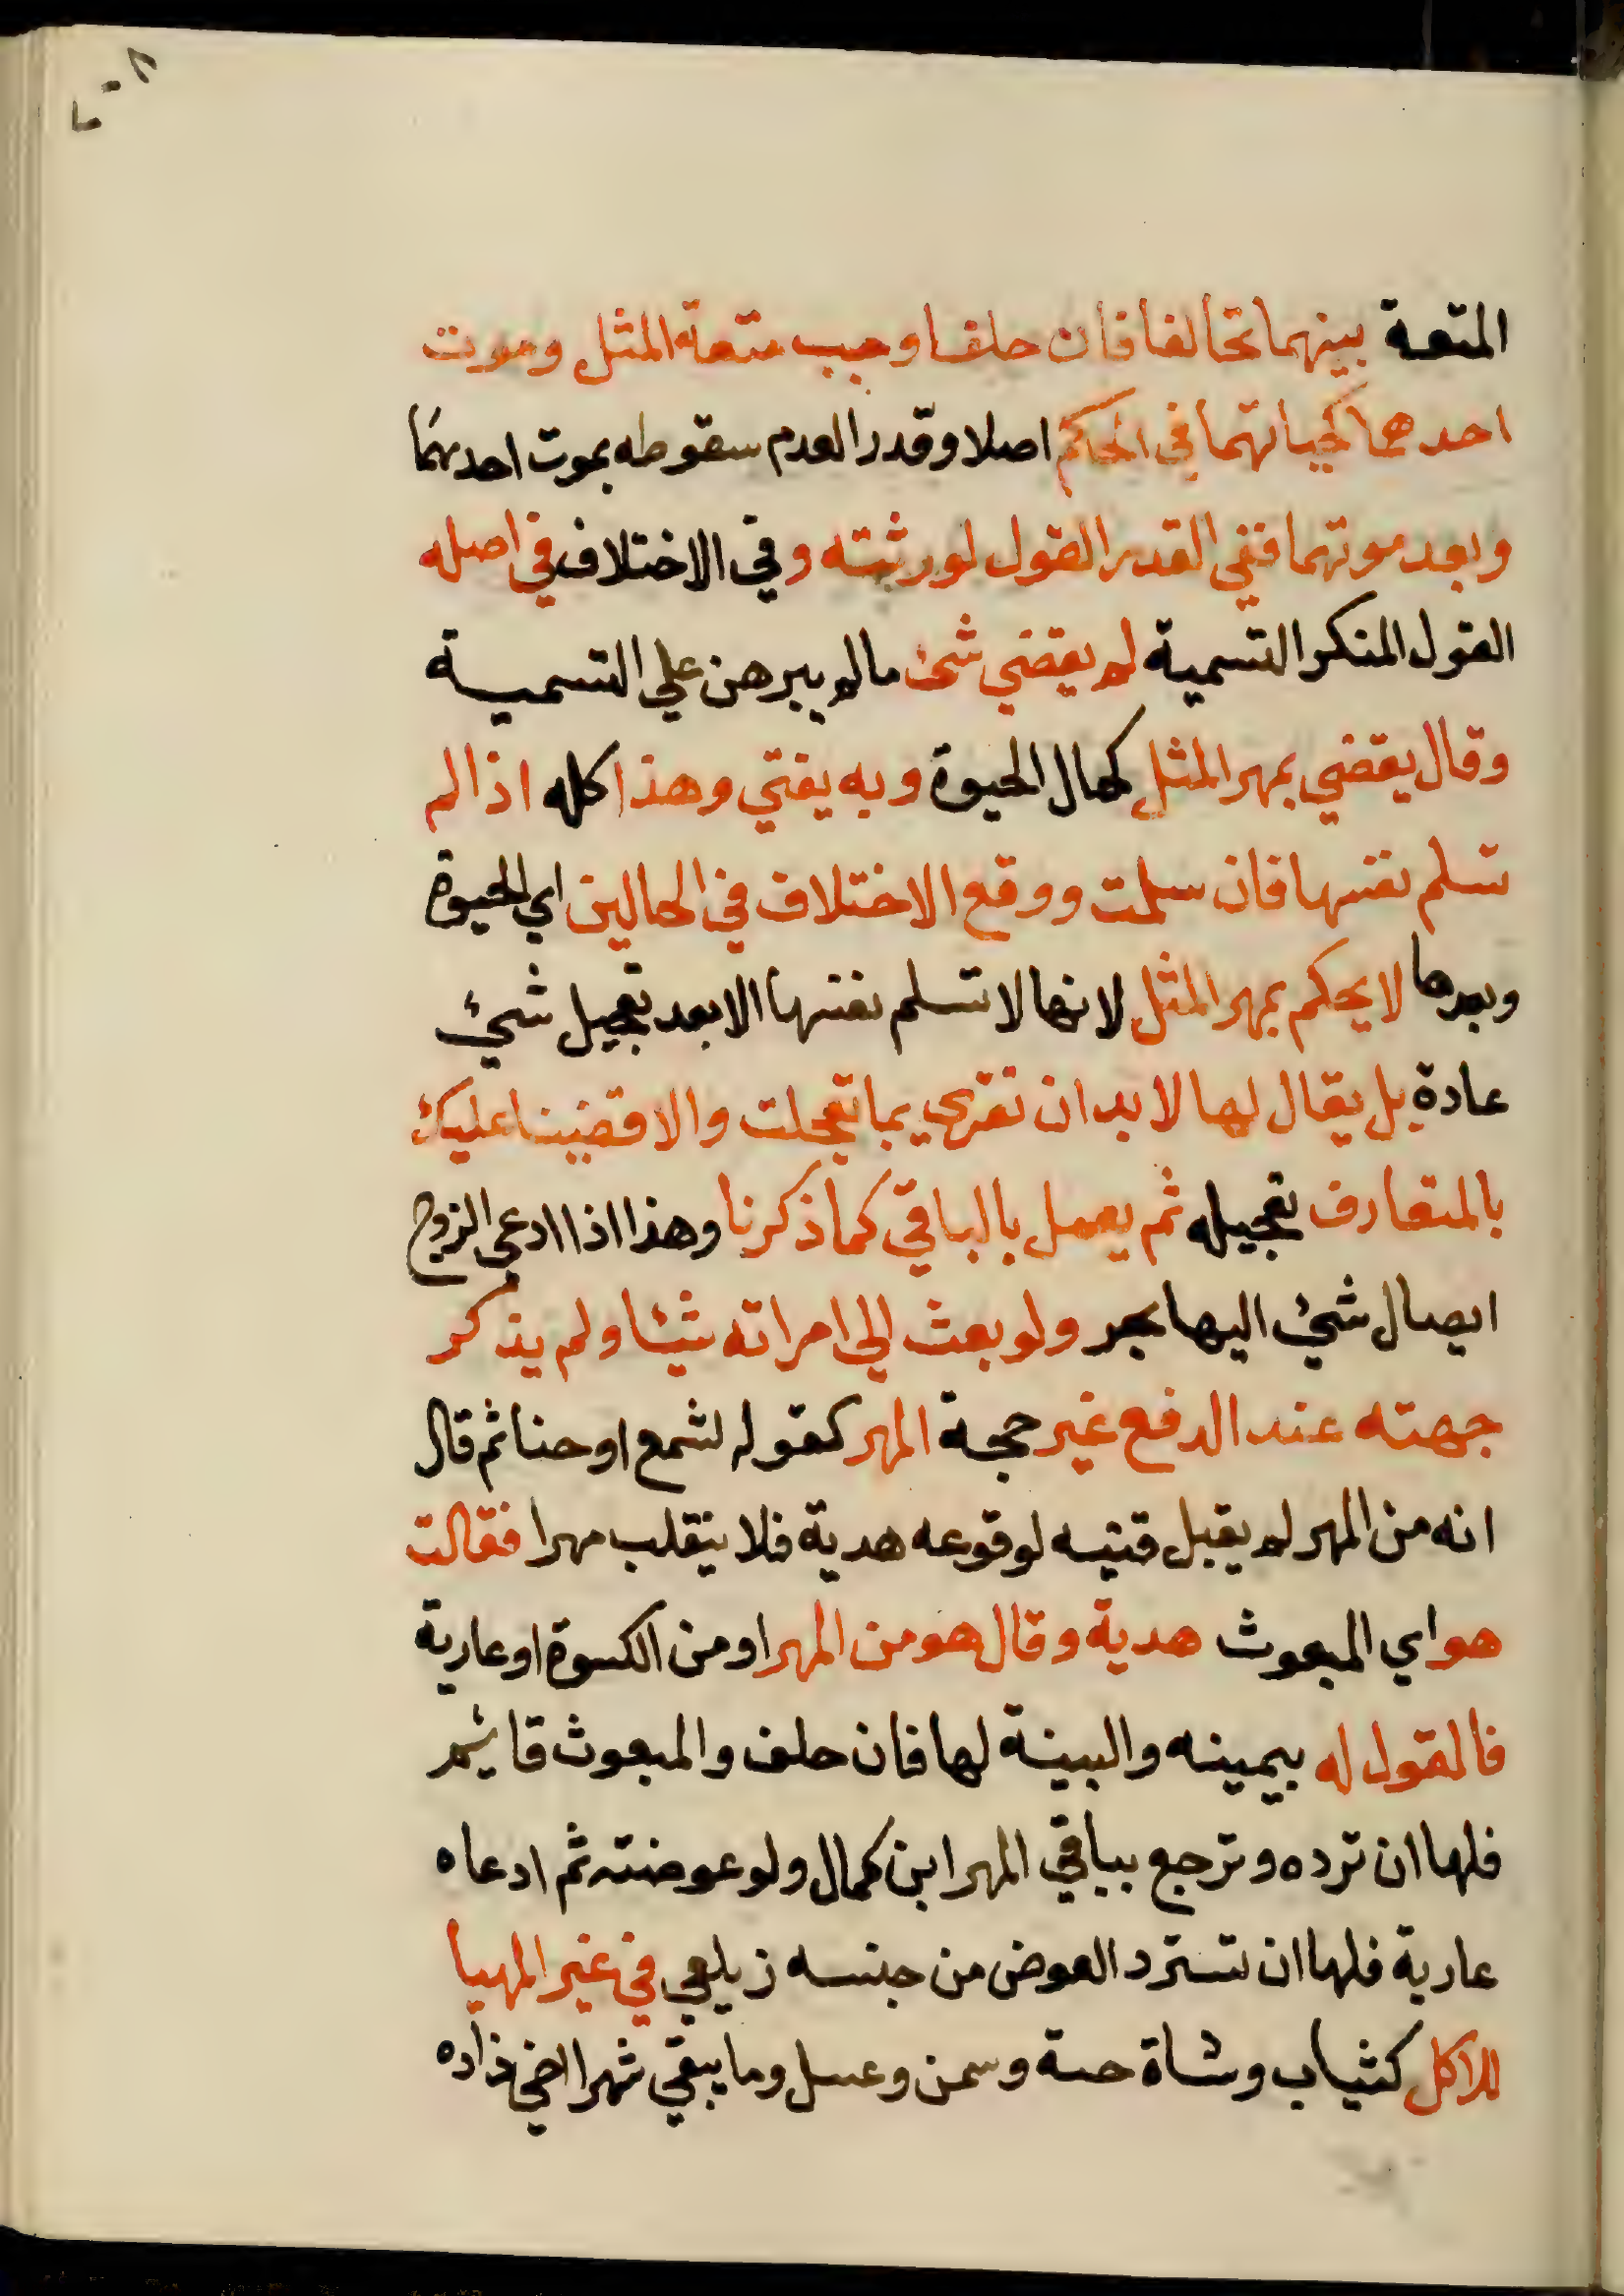 ٢٠٨
المتعة بينهما تحالفا فان حلفا وجب متعة المثل وموت
احدهما كحياتهما في الحكم اصلا وقدرا لعدم سقوطه بموت احدهما
وبعد موتهما ففي القدر القول لورثته وفي الاختلاف في اصله
القول لمنكر التسمية لم يقضي شئ مالم يبرهن علي التسمية
وقال يقضي بمهر المثل كحال الحيوة وبه يفتي وهذا كله اذا لم
تسلم نفسها فان سلمت ووقع الاختلاف في الحالين اي الحيوة
وبعدها لا يحكم بمهر المثل لانها لا تسلم نفسها الا بعد تعجيل شئ
عادة بل يقال لها لا بد ان تقري بما تعجلت والا قضينا عليك
بالمتعارف تعجيله ثم يعمل بالباقي كما ذكرنا وهذا اذا ادعى الزوج
ايصال شئ اليها بحر ولو بعث الي امراته شيئا ولم يذكر
جهته عند الدفع غير جهة المهر كقوله لشمع او حنا ثم قال
انه من المهر لم يقبل قنيه لوقوعه هدية فلا ينقلب مهرا فقالت
هو اي المبعوث هدية وقال هو من المهر او من الكسوة او عارية
فالقول له بيمينه والبينة لها فان حلف والمبعوث قائم
فلها ان ترده وترجع بباقي المهر ابن كمال ولو عوضته ثم ادعاه
عارية فلها ان تسترد العوض من جنسه زيلعي في غير المهيا
للاكل كثياب وشاة حية وسمن وعسل وما يبقي شهرا اخي زاده